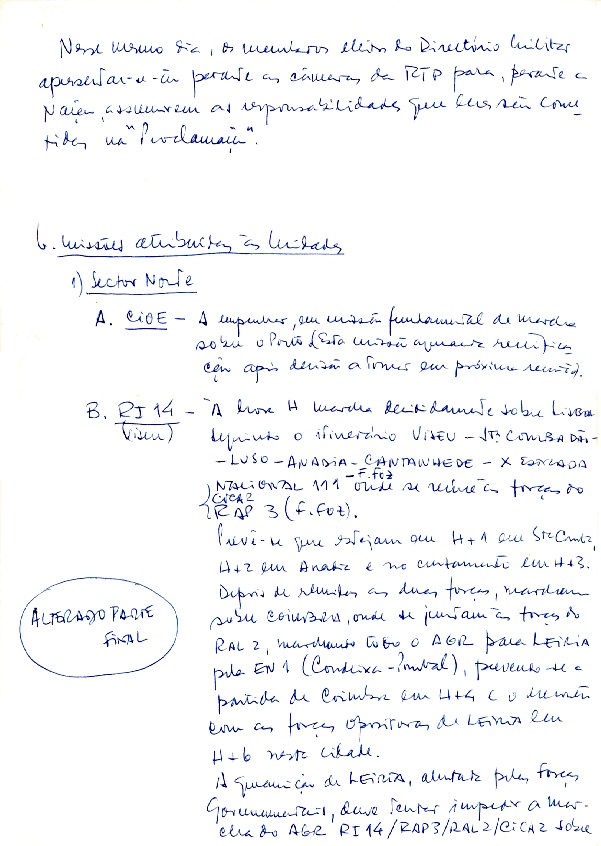 Nesse mesmo dia, os membros eleitos do Directório Militar
apresentar-se-ão perante as câmeras da RTP para, perante a
Nação, assumirem as responsabilidades que lhes são come-
tidas na "Proclamação".
6. Missões atribuidas às Unidades
1) Sector Norte
A. CIOE - A empenhar, em missão fundamental de marcha
sobre o Porto (Esta missão aguarda rectifica
ção após decisão a tomar em próxima reunião).
B. RI 14 - À hora H marcha decididamente sobre LISBOA
(Viseu) seguindo o itinerário VISEU - Stª COMBA DÃO-
- LUSO - ANADIA - CANTANHEDE - X ESTRADA
NACIONAL 111 - F. FOZ onde se reúne às forças do
CICA 2
RAP 3 (F. FOZ).
Prevê-se que estejam em H+1 em Stª Comba,
H+2 em Anadia e no cruzamento em H+3.
Depois de reunidas as duas forças, marcham
sobre COIMBRA, onde se juntam às forças do
RAL 2, marchando todo o AGR para LEIRIA
pela EN 1 (Condeixa-Pombal), prevendo-se a
partida de Coimbra em H+4 e o
com as forças opositoras de LEIRIA em
H+6 nesta cidade.
A Guarnição de LEIRIA, alertada pelas forças
Governamentais, deve tentar impedir a mar-
cha do AGR RI14/RAP3/RAL2/CICA2 sobre
ALTERADO PARTE
FINAL